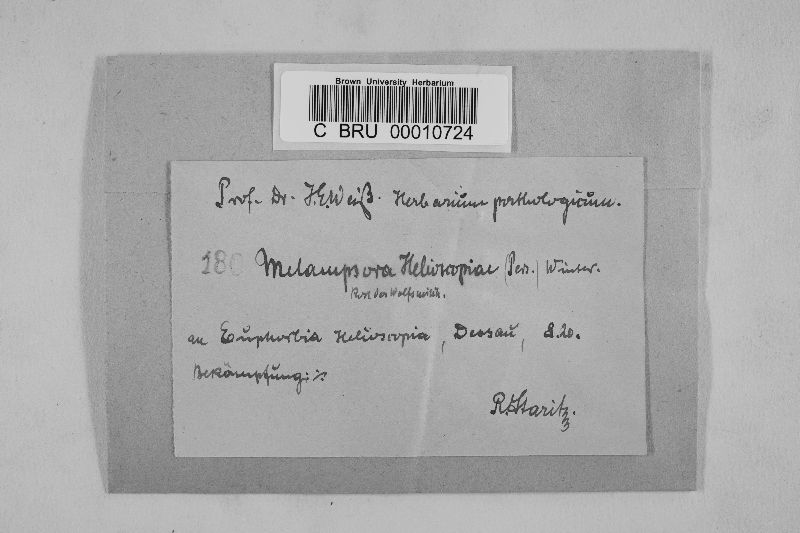 Brown University Herbarium
C BRU 00010724
Prof. Dr. J.E. Weiß. Herbarium pathologicum.
180 Melampsora Helioscopiae (Pers.) Winter.
Rost der Wolfsmilch.
an Euphorbia Helioscopia, Dessau, 8.20.
Bekämpfung: ⁒
R. Staritz.